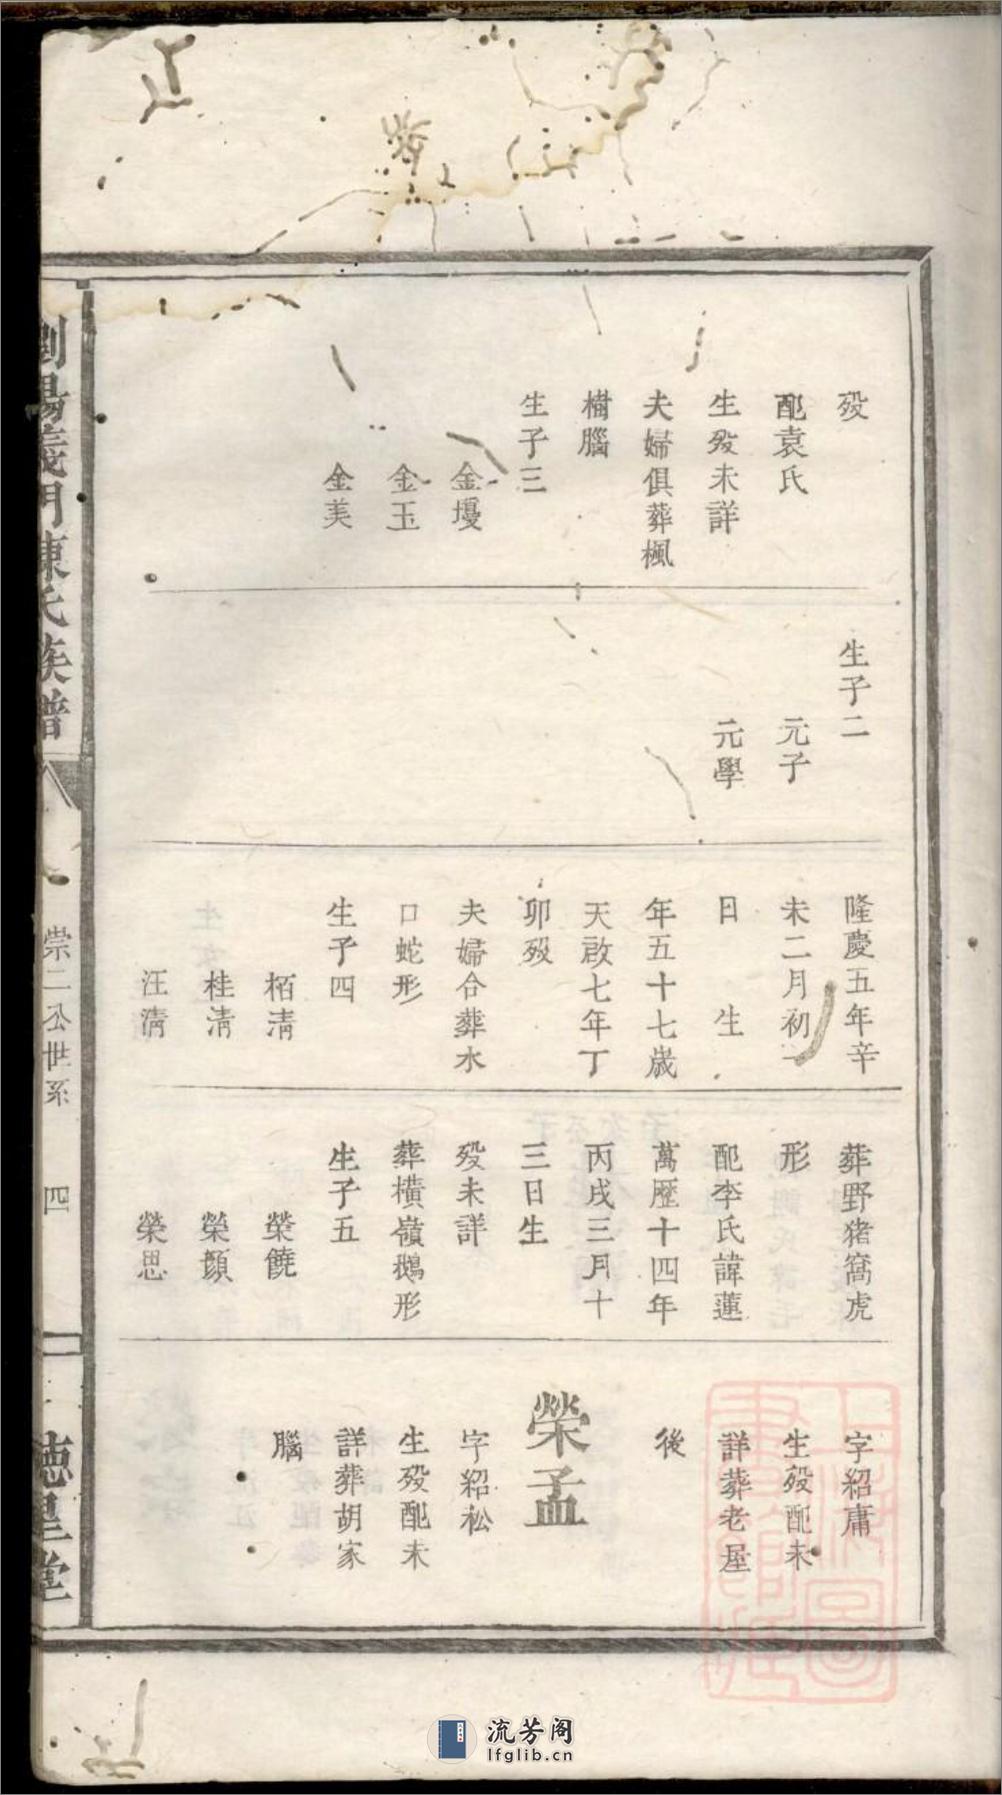 歿
配袁氏
生歿未詳
夫婦俱葬楓
樹腦
生子三
金𡑞
金玉
金美
生子二
元子
元學
隆慶五年辛
未二月初一
日　生
年五十七歲
天啟七年丁
卯歿
夫婦合葬水
口蛇形
生子四
栢清
桂清
汪清
葬野猪窩虎
形
配李氏諱蓮
萬歷十四年
丙戌三月十
三日生
歿未詳
葬橫嶺鵝形
生子五
榮饒
榮顏
榮思
字紹庸
生歿配未
詳葬老屋
後
榮孟
字紹松
生歿配未
詳葬胡家
腦
瀏陽義門陳氏族譜
崇二公世系
四
德星堂
上海圖書館藏
流芳阁
lfglib.cn